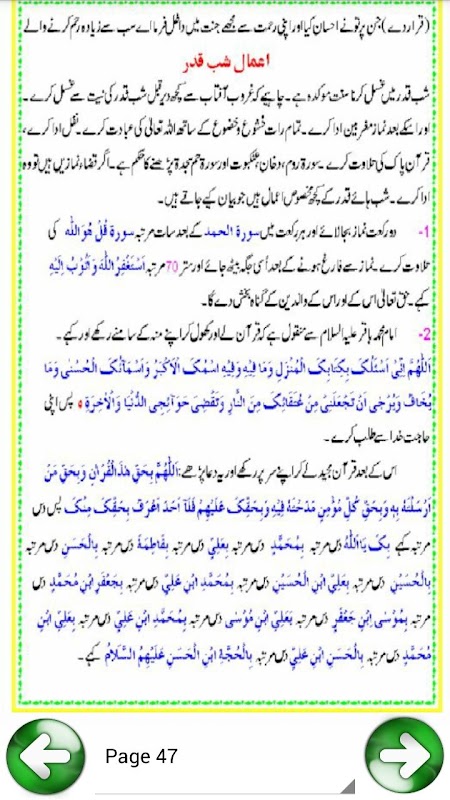 (قرار دے) جن پر تو نے احسان کیا اور اپنی رحمت سے مجھے جنت میں داخل فرما اے سب سے زیادہ رحم کرنے والے
اعمال شب قدر
شب قدر میں غسل کرنا سنت مؤکدہ ہے۔ چاہیے کہ غروب آفتاب سے کچھ دیر قبل شب قدر کی نیت سے غسل کرے۔
اور اسکے بعد نماز مغربین ادا کرے۔ تمام رات خشوع و خضوع کے ساتھ اللہ تعالیٰ کی عبادت کرے۔ نفل ادا کرے،
قرآن پاک کی تلاوت کرے۔ سورۃ روم، دخان، عنکبوت اور سورۃ حم سجدۃ پڑھنے کا حکم ہے۔ اگر قضاء نمازیں ہیں تو وہ
ادا کرے۔ شب ہائے قدر کے کچھ مخصوص اعمال ہیں جو بیان کیے جاتے ہیں۔
1- دو رکعت نماز بجا لائے اور ہر رکعت میں سورۃ الحمد کے بعد سات مرتبہ سورۃ قُلْ هُوَ اللّٰه کی
تلاوت کرے۔ نماز سے فارغ ہونے کے بعد اُسی جگہ بیٹھ جائے اور ستر 70 مرتبہ اَسْتَغْفِرُ اللّٰهَ وَ اَتُوْبُ اِلَيْهِ
کہے۔ حق تعالیٰ اس کے اور اس کے والدین کے گناہ بخش دے گا۔
2- امام محمد باقر علیہ السلام سے منقول ہے کہ قرآن لے اور کھول کر اپنے منہ کے سامنے رکھے اور کہے۔
اَللّٰهُمَّ اِنِّيْ اَسْئَلُكَ بِكِتَابِكَ الْمُنْزَلِ وَمَا فِيْهِ وَفِيْهِ اسْمُكَ الْاَكْبَرُ وَاَسْمَآئُكَ الْحُسْنٰى وَمَا
يُخَافُ وَيُرْجٰى اَنْ تَجْعَلَنِيْ مِنْ عُتَقَائِكَ مِنَ النَّارِ وَتَقْضِىَ حَوَآئِجِى الدُّنْيَا وَالْاٰخِرَةِ ہ پس اپنی
حاجت خدا سے طلب کرے۔
اس کے بعد قرآن مجید لے کر اپنے سر پر رکھے اور یہ دعا پڑھے: اَللّٰهُمَّ بِحَقِّ هٰذَا الْقُرْاٰنِ وَبِحَقِّ مَنْ
اَرْسَلْتَهُ بِهِ وَبِحَقِّ كُلِّ مُؤْمِنٍ مَدَحْتَهُ فِيْهِ وَبِحَقِّكَ عَلَيْهِمْ فَلَآ اَحَدَ اَعْرَفُ بِحَقِّكَ مِنْكَ پس دس
مرتبہ کہے بِكَ يَا اَللّٰهُ دس مرتبہ بِمُحَمَّدٍ دس مرتبہ بِعَلِيٍّ دس مرتبہ بِفَاطِمَةَ دس مرتبہ بِالْحَسَنِ دس مرتبہ
بِالْحُسَيْنِ دس مرتبہ بِعَلِيِّ ابْنِ الْحُسَيْنِ دس مرتبہ بِمُحَمَّدِ ابْنِ عَلِيٍّ دس مرتبہ بِجَعْفَرِ ابْنِ مُحَمَّدٍ دس
مرتبہ بِمُوْسَى ابْنِ جَعْفَرٍ دس مرتبہ بِعَلِيِّ ابْنِ مُوْسٰى دس مرتبہ بِمُحَمَّدِ ابْنِ عَلِيٍّ دس مرتبہ بِعَلِيِّ ابْنِ
مُحَمَّدٍ دس مرتبہ بِالْحَسَنِ ابْنِ عَلِيٍّ دس مرتبہ بِالْحُجَّةِ ابْنِ الْحَسَنِ عَلَيْهِمُ السَّلَامُ کہے۔
Page 47